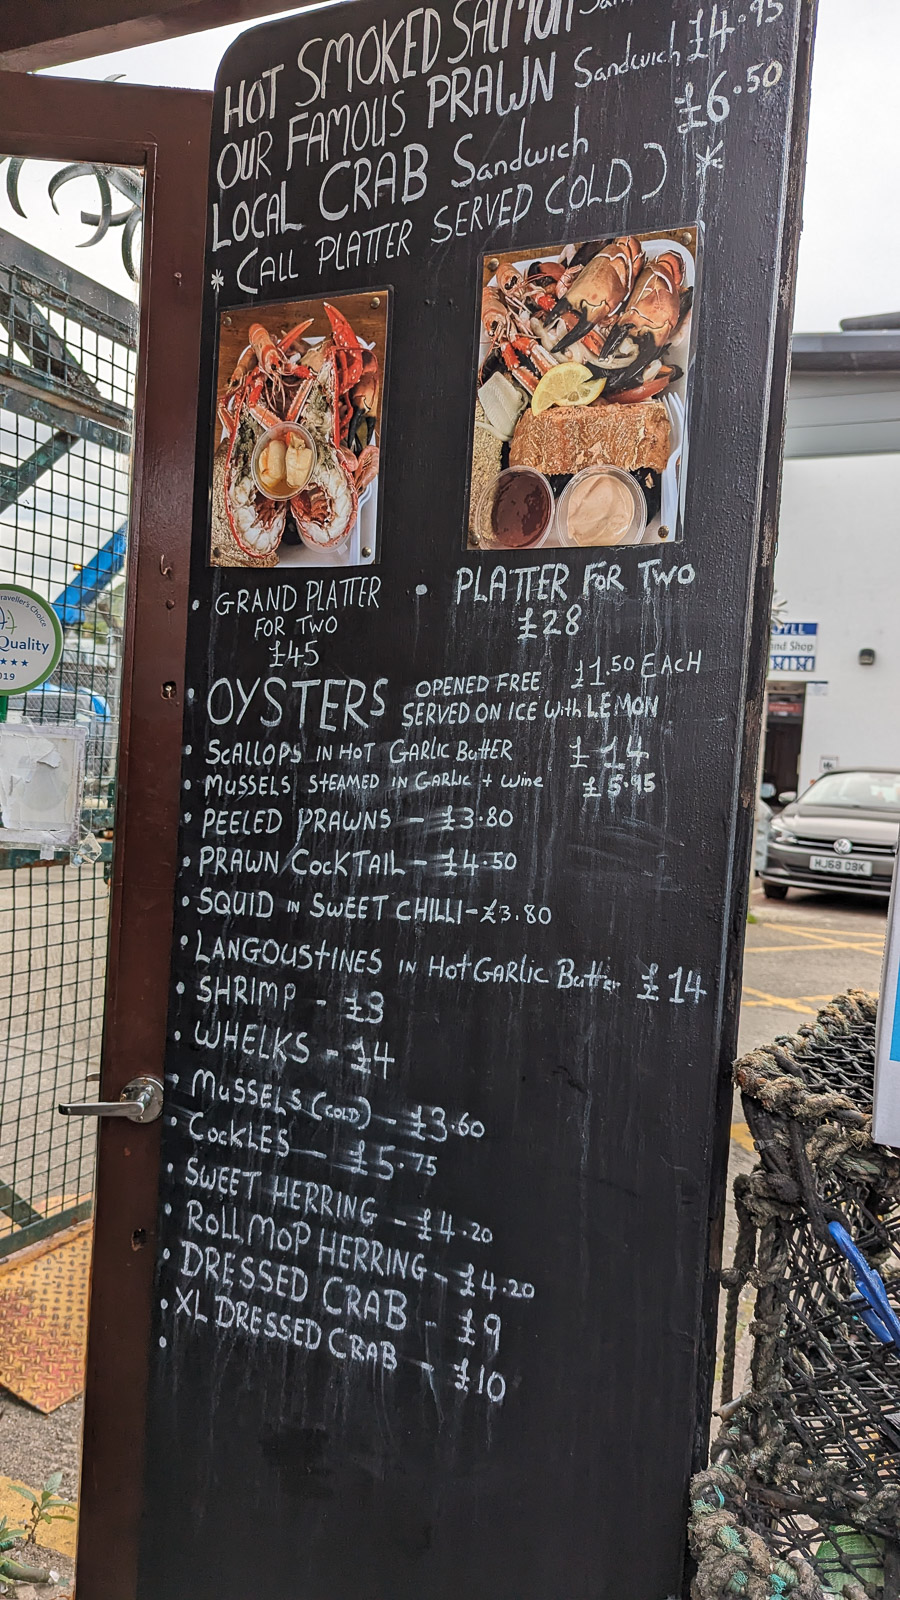 HOT SMOKED SALMON
OUR FAMOUS PRAWN Sandwich £4.95
LOCAL CRAB Sandwich £6.50
* (ALL PLATTER SERVED COLD) *
• GRAND PLATTER
FOR TWO
£45
• PLATTER FOR TWO
£28
• OYSTERS OPENED FREE £1.50 EACH
SERVED ON ICE with LEMON
• SCALLOPS IN HOT GARLIC ButtER £14
• MUSSELS STEAMED IN GARLIC + Wine £5.95
• PEELED PRAWNS - £3.80
• PRAWN COCKTAIL - £4.50
• SQUID IN SWEET CHILLI - £3.80
• LANGOUStINES IN HOt GARLIC Butter £14
• SHRIMP - £3
• WHELKS - £4
• MUSSELS (COLD) - £3.60
• COCKLES - £5.75
• SWEET HERRING - £4.20
• ROLLMOP HERRING - £4.20
• DRESSED CRAB - £9
• XL DRESSED CRAB - £10
Traveller's Choice
Quality
HJ68 OBK